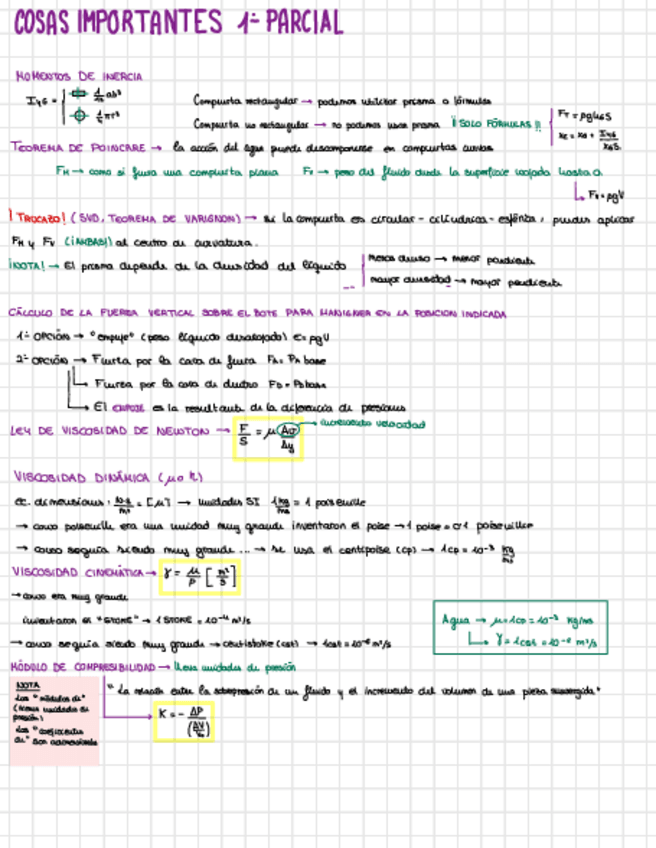 COSAS IMPORTANTES 1er PARCIAL
MOMENTOS DE INERCIA
Compuerta rectangular → podemos utilizar prisma o fórmulas
Compuerta no rectangular → no podemos usar prisma ¡¡SOLO FÓRMULAS!!
FT = ρghGS
TEOREMA DE POINCARE → la acción del agua puede descomponerse en compuertas curvas
FH → como si fuera una compuerta plana FV → peso del fluido desde la superficie mojada hasta
FV = ρgV
¡TRUCAZO! (SVD, TEOREMA DE VARIGNON) → si la compuerta es circular - cilíndrica - esférica, puedes aplicar
FH y FV (¡AMBAS!) al centro de curvatura.
¡NOTA! → El prisma depende de la densidad del líquido
menos denso → menor pendiente
mayor densidad → mayor pendiente
CÁLCULO DE LA FUERZA VERTICAL SOBRE EL BOTE PARA MANTENER EN LA POSICION INDICADA
1ª OPCIÓN → "empuje" (peso líquido desalojado) E = ρgV
2ª OPCIÓN → Fuerza por la cara de fuera FA = PA base
Fuerza por la cara de dentro FB = PB base
El EMPUJE es la resultante de la diferencia de presiones
LEY DE VISCOSIDAD DE NEWTON → F/S = μ Δv/Δy → incremento velocidad
VISCOSIDAD DINÁMICA (μ o η)
ec. dimensiones: = [μ] → unidades SI 1 kg/ms = 1 poiseuille
→ como poiseuille era una unidad muy grande inventaron el poise → 1 poise = 0'1 poiseuilles
→ como seguía siendo muy grande ... → se usa el centipoise (cp) → 1cp = 10⁻³ kg/ms
VISCOSIDAD CINEMÁTICA → γ = μ/ρ [m²/s]
→ como era muy grande
inventaron el "STOKE" → 1 STOKE = 10⁻⁴ m²/s
→ como seguía siendo muy grande → centistoke (cst) → 1cst = 10⁻⁶ m²/s
Agua → μ = 1cp = 10⁻³ kg/ms
γ = 1cst = 10⁻⁶ m²/s
MÓDULO DE COMPRESIBILIDAD → lleva unidades de presión
"La relación entre la sobrepresión de un fluido y el incremento del volumen de una pieza sumergida"
K = - ΔP/(ΔV/V₀)
NOTA
Los "módulos de"
(tienen unidades de
presión)
Los "coeficientes
de" son adimensionales